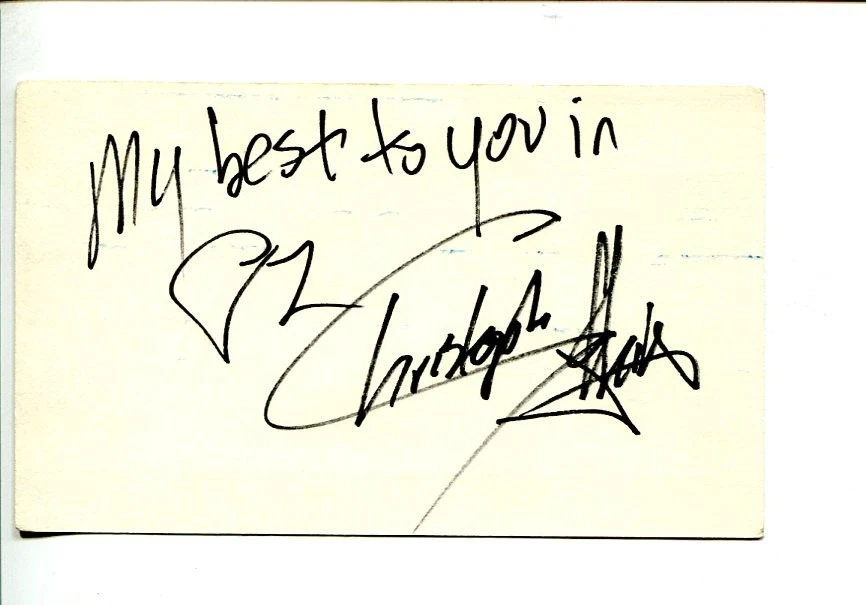 My best to you in
Christoph